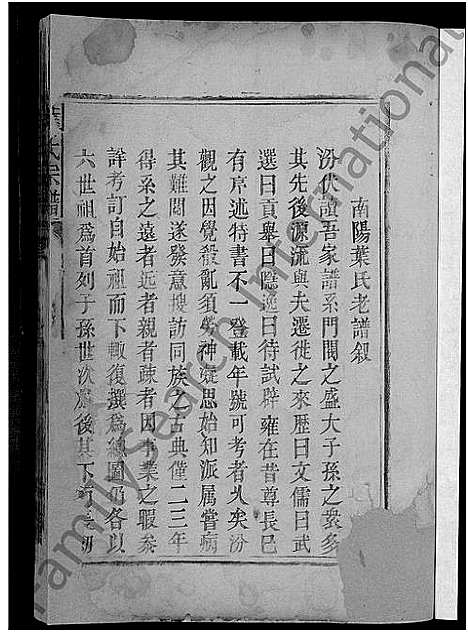 南陽葉氏老譜叙
汾伏讀吾家譜系門閥之盛大子孫之衆多
其先後源流與夫遷徙之來歷曰文儒曰武
選曰貢舉曰隱逸曰待試辟雍在昔尊長已
有序述特書不一登載年號可考者久矣汾
觀之因覺殽亂須勞神凝思始知派属嘗病
其難閱遂發意搜訪同族之古典僅二三年
得系之遠者近者親者疎者因事業之暇叅
詳考訂自始祖而下輙復撰爲線圖仍各以
六世祖爲首列子孫世次於後其下
氏宗譜
FamilySearch International